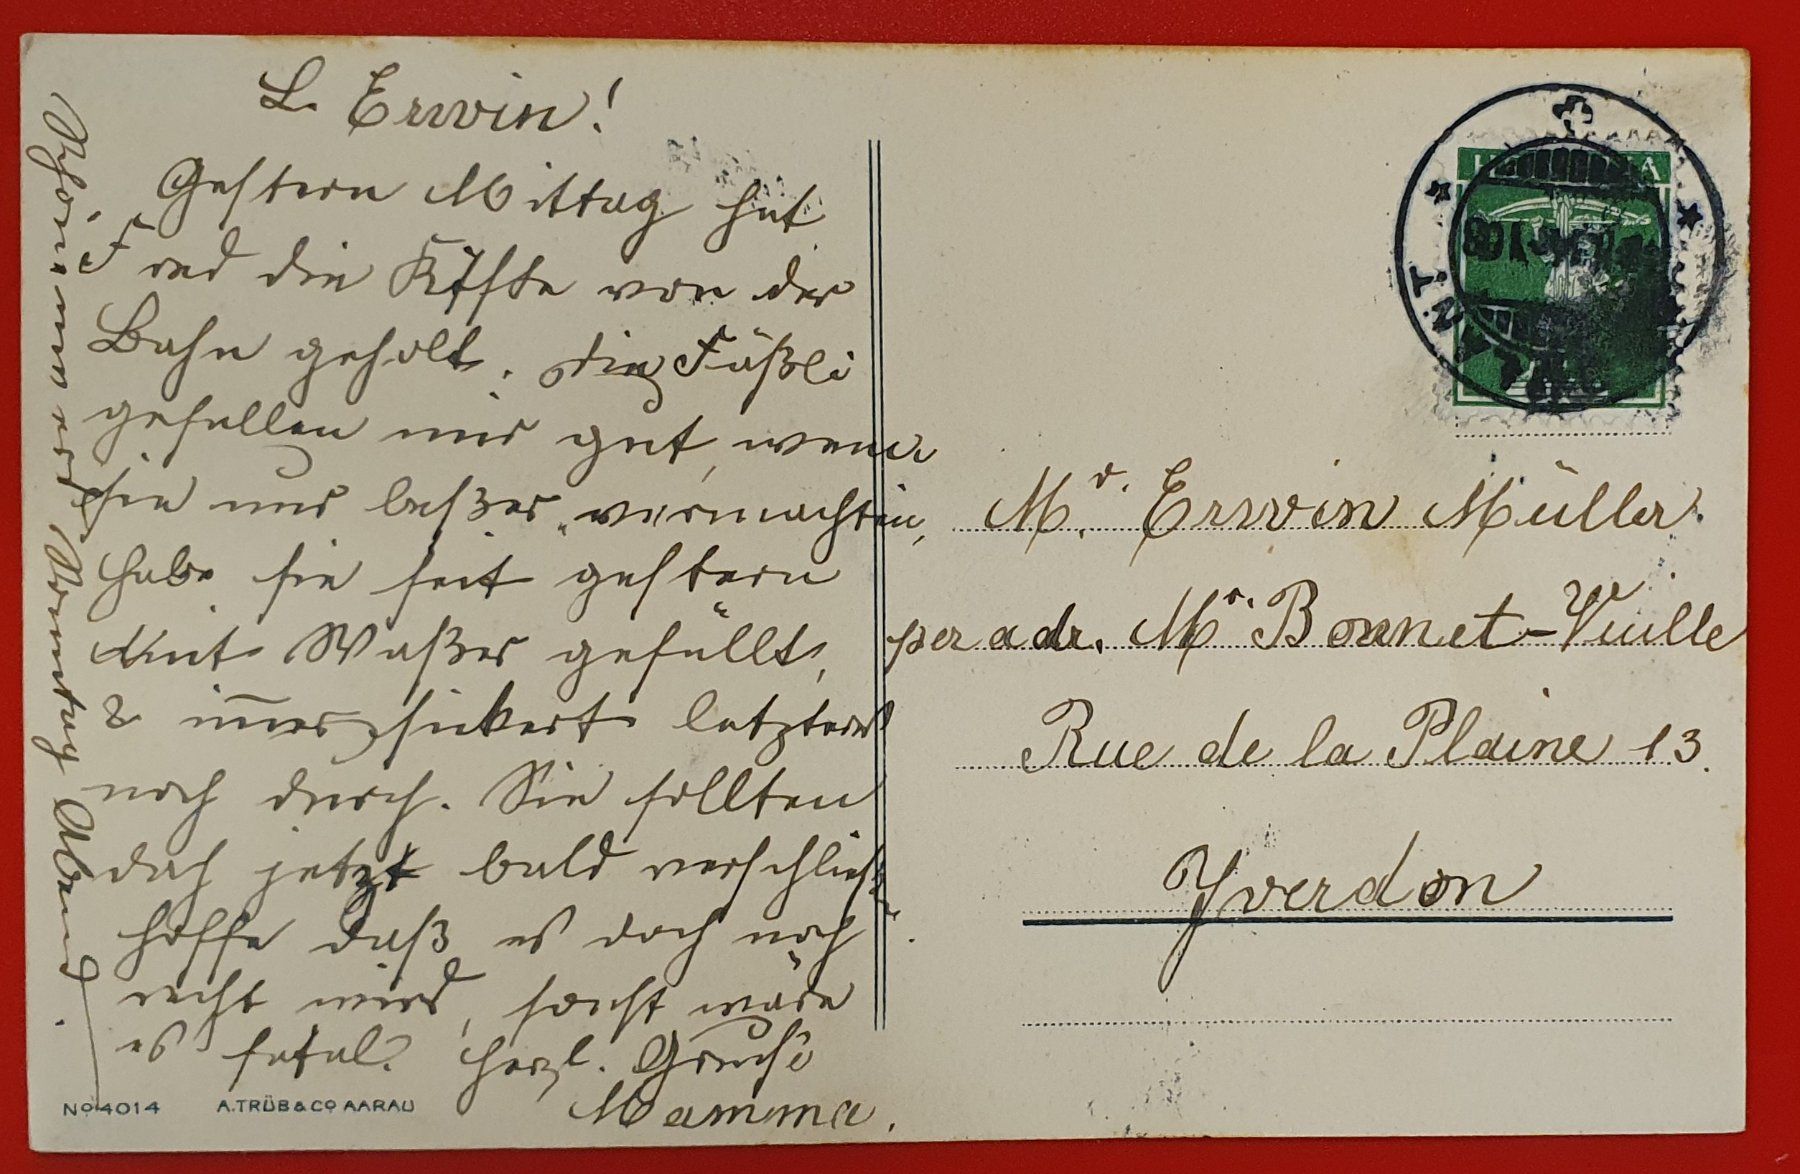 L. Erwin!
Gestern Mittag hat
Fred die Kiste von der
Bahn geholt. Die Fäßli
gefallen mir gut, wenn
sie nur beßer "vermachten,
habe sie seit gestern
mit Waßer gefüllt,
& im̅er sickert letzteres
noch durch. Sie sollten
doch jetzt bald verschließen
hoffe daß es doch noch
recht wird, sonst wäre
es fatal. Herzl. Gruß
Mamma.
Schönenwerd, Sonntag Abend.
No 4014 A. TRÜB & Co AARAU
HELVETIA
Mr. Erwin Müller.
per adr. Mr. Bonnet-Vuille
Rue de la Plaine 13.
Yverdon